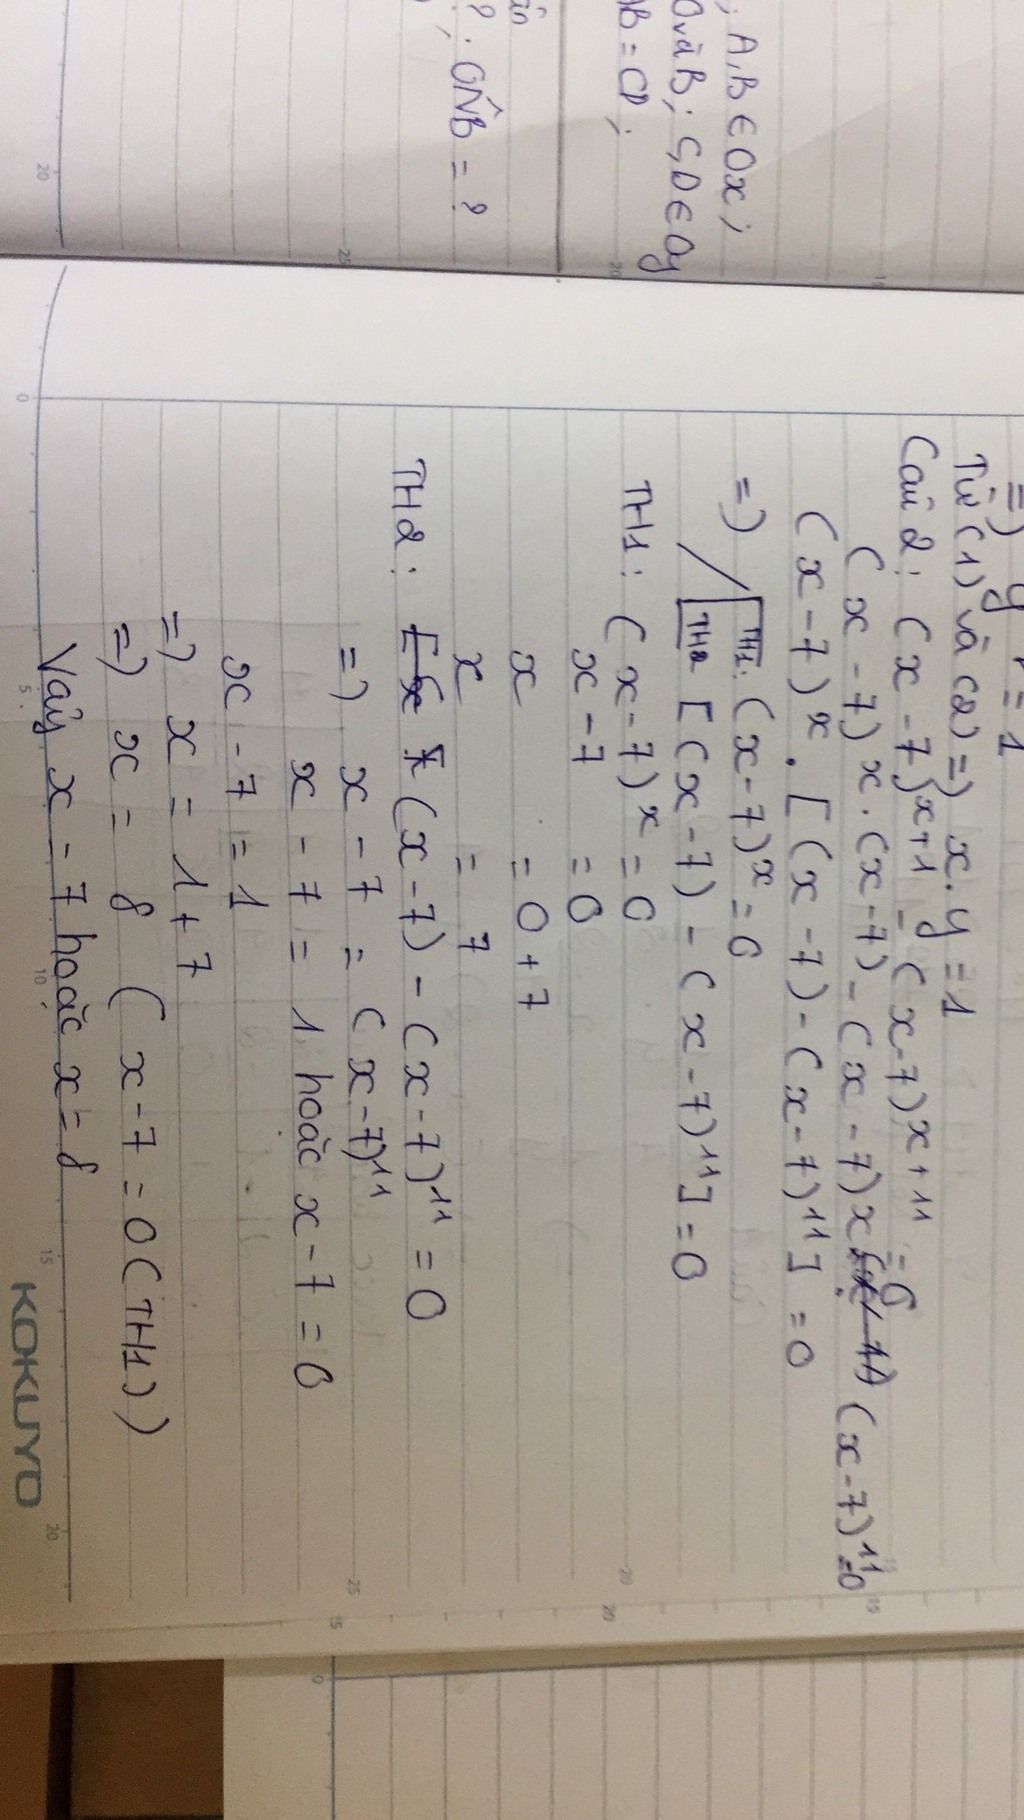 ; A,B ∈ Ox ;
O và B ; C,D ∈ Oy
AB = CD ;
? ; ON̂B = ?
=) y = 1
Từ (1) và (2) =) x.y = 1
Câu 2: (x - 7)ˣ⁺¹ - (x - 7)ˣ⁺¹¹ = 0
(x - 7)ˣ . (x - 7) - (x - 7)ˣ (x - 7)¹¹ = 0
(x - 7)ˣ . [(x - 7) - (x - 7)¹¹] = 0
=) TH1: (x - 7)ˣ = 0
TH2 [(x - 7) - (x - 7)¹¹] = 0
TH1: (x - 7)ˣ = 0
x - 7 = 0
x = 0 + 7
x = 7
TH2: (x - 7) - (x - 7)¹¹ = 0
=) x - 7 = (x - 7)¹¹
x - 7 = 1 hoặc x - 7 = 0
x - 7 = 1
=) x = 1 + 7
=) x = 8 (x - 7 = 0 (TH1)
Vậy x = 7 hoặc x = 8
KOKUYO